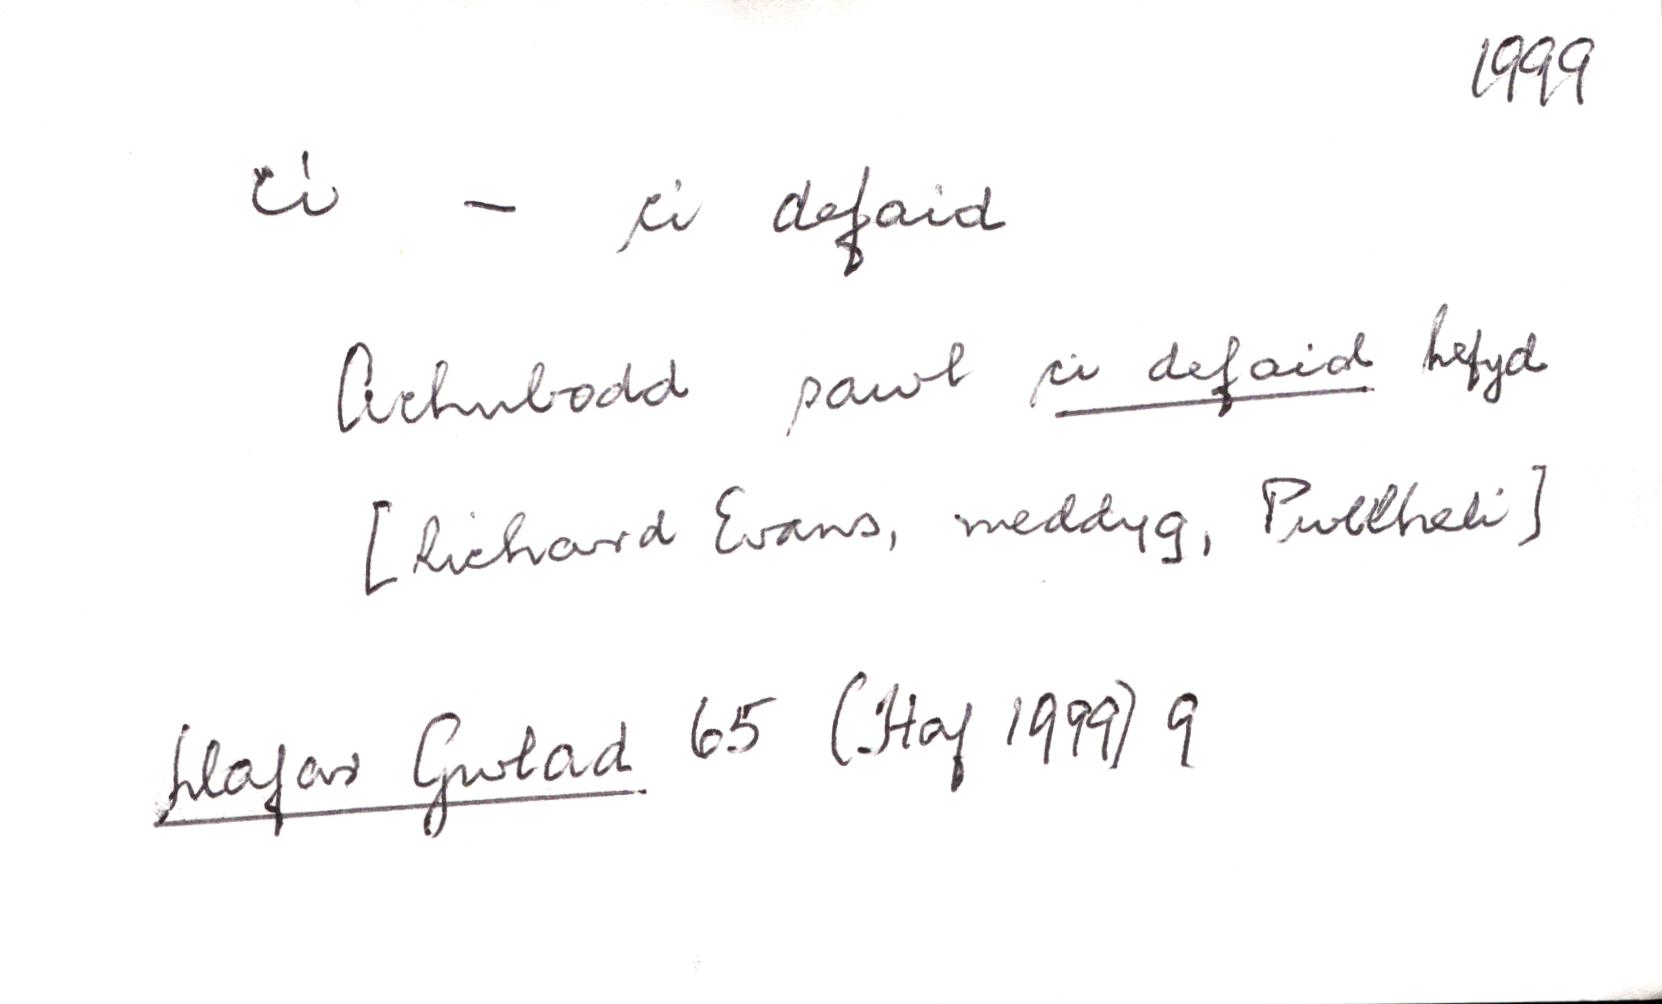 1999
ci - ci defaid
Achubodd pawb ci defaid hefyd
[Richard Evans, meddyg, Pwllheli]
Llafar Gwlad 65 (Haf 1999) 9